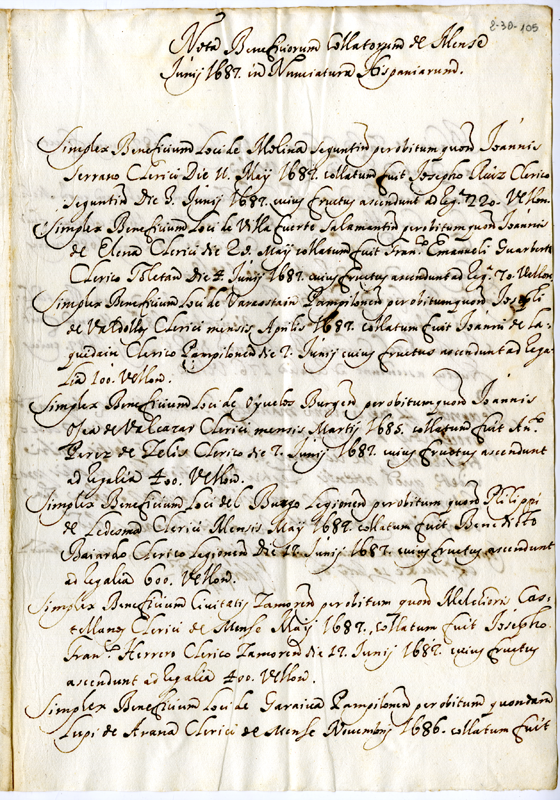 8-30-105
Nota Beneficiorum Collatorum de Mense
Junij 1687. in Nunciatura Hispaniarum.
Simplex Beneficium Loci de Molina seguntin perobitum quond Joannis
Serrano Clerici Die 11. Maij 1687. collatum fuit Josepho Ruiz Clerico
seguntin Die 3. Junij 1687. cuius fructus ascendunt ad Reg. 220. Vellon.
Simplex Beneficium Loci de Villa fuerte Salamantin perobitum quond Joannis
de Elena Clerici die 25. Maij collatum fuit Fran.co Emanueli
Clerico Toletan die 4 Junij 1687. cuius fructus ascendunt ad Reg. 70. Vellon.
Simplex Beneficium Loci de Pampilonen perobitum quond Josephi
de Clerici mensis Aprilis 1687. collatum fuit Joanni de la-
guedain Clerico Pampilonen die 7. Junij cuius fructus ascendunt ad Rega-
lia 100. Vellon.
Simplex Beneficium Loci de Burgen perobitum quond Joannis
Osea de Valcazar Clerici mensis Martij 1685. collatum fuit An.o
Perez de Zelis Clerico die 7. Junij 1687. cuius fructus ascendunt
ad Regalia 400. Vellon.
Simplex Beneficium Loci del Burgo Legionen perobitum quond Philippi
de Ledesma Clerici Mensis Maij 1687. collatum fuit Benedicto
Baiardo Clerico Legionen Die 12. Junij 1687. cuius fructus ascendunt
ad Regalia 600. Vellon.
Simplex Beneficium Civitatis Zamoren perobitum quond Melchioris Cas-
tellanos Clerici de Mense Maij 1687., collatum fuit Josepho
Fran.co Herrero Clerico Zamoren die 12. Junij 1687. cuius fructus
ascendunt ad Regalia 400. Vellon.
Simplex Beneficium Loci de Garaica Pampilonen perobitum quondam
Lupi de Arana Clerici de Mense Novembrij 1686. collatum fuit